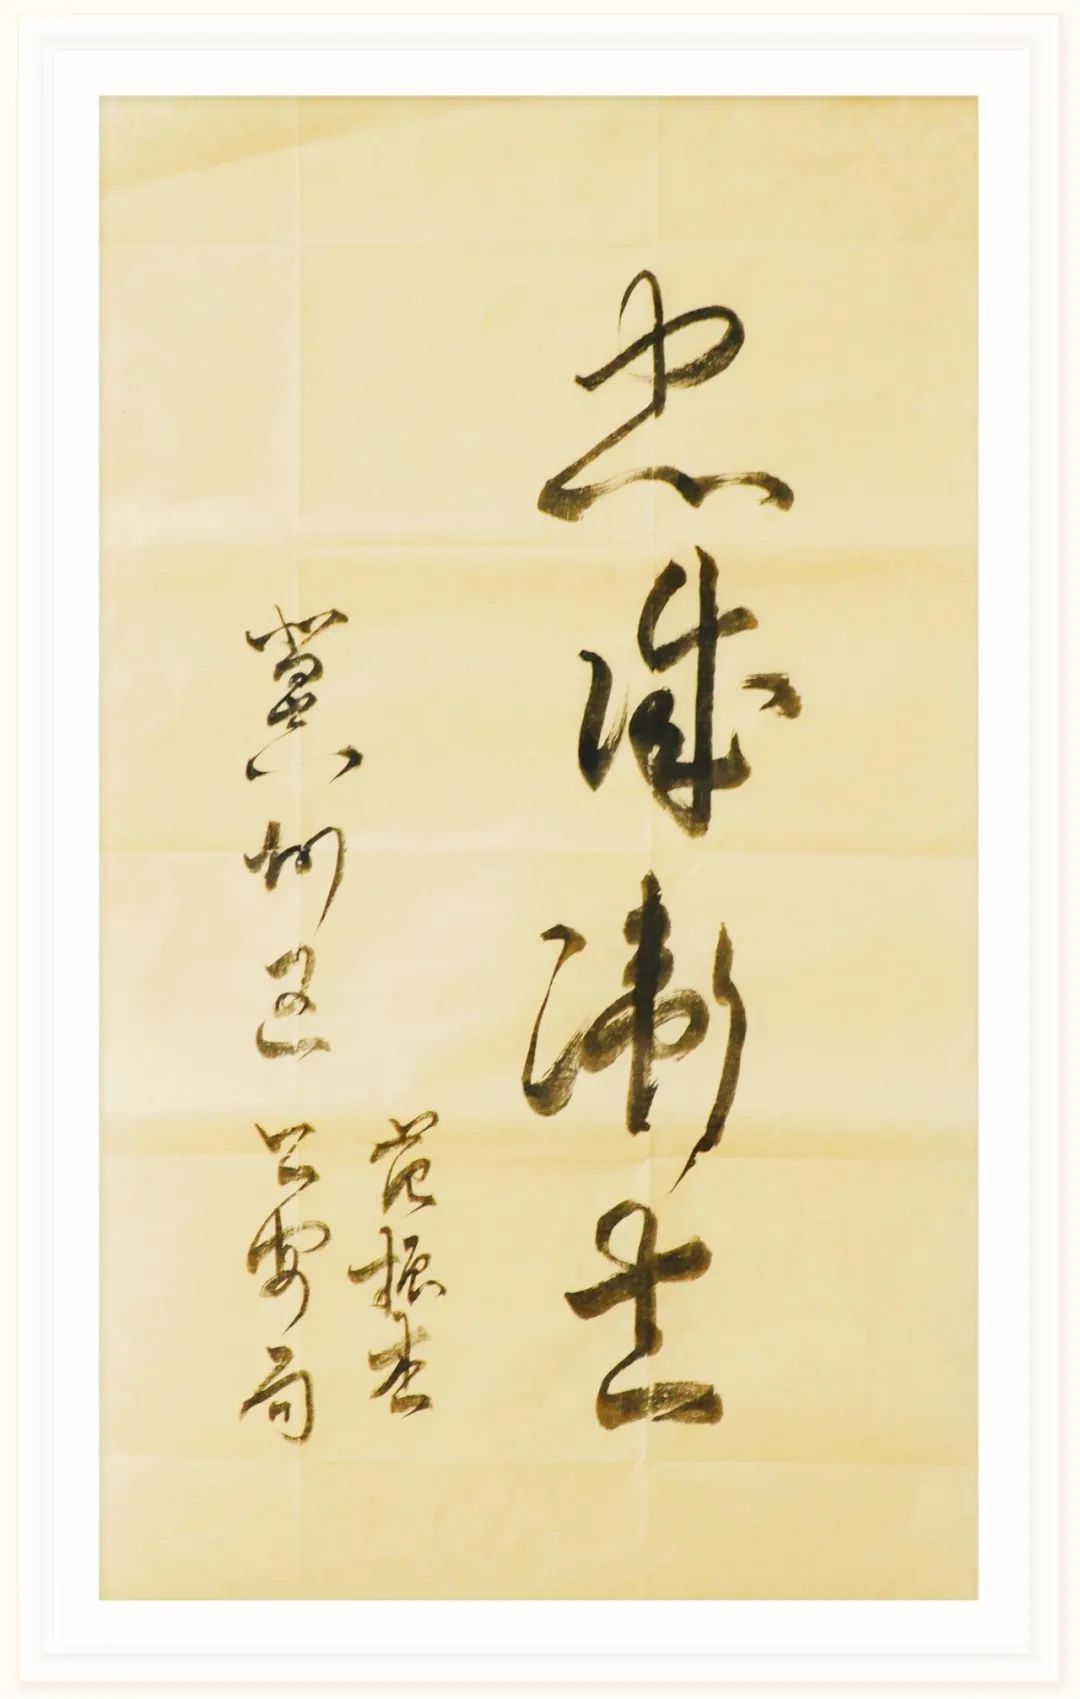 忠诚卫士
范振生
冀州区公安局